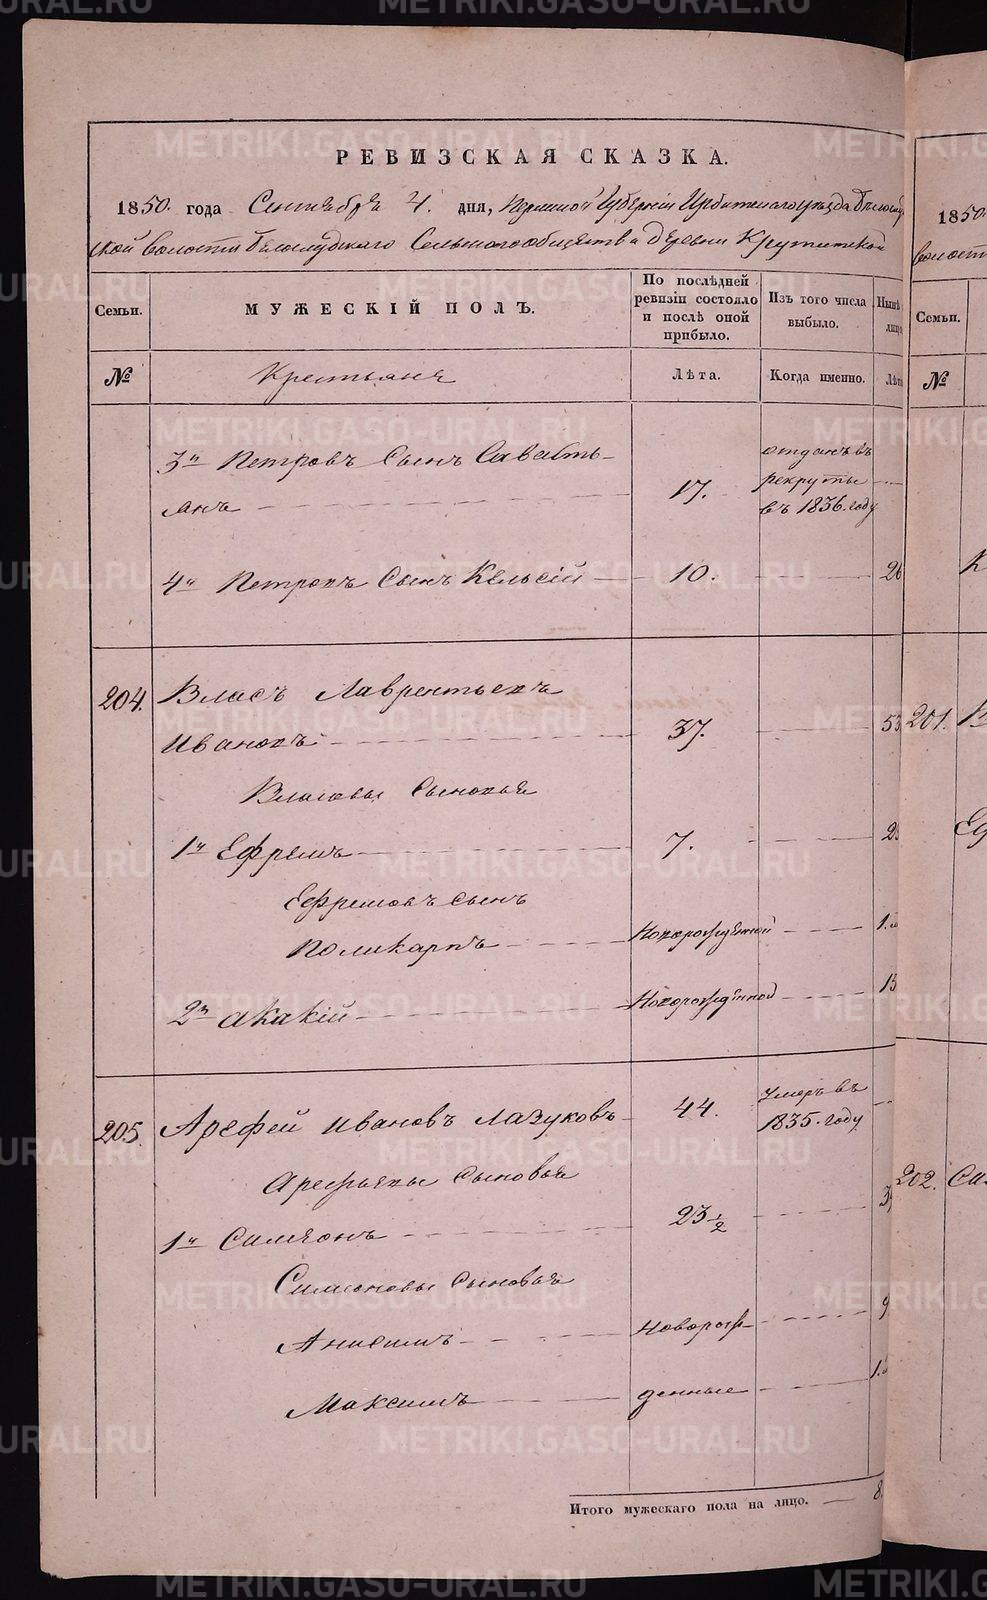 РЕВИЗСКАЯ СКАЗКА.
1850. года Сентября 4. дня, Пермской Губернiи Ирбитскаго уѣзда Бѣлослуд
ской волости Бѣлослудскаго Сельскаго общества деревни Крутитской
Семьи. МУЖЕСКIЙ ПОЛЪ. По послѣдней ревизiи состояло и послѣ оной прибыло. Изъ того числа выбыло. Нынѣ лицо
№ Крестьяне Лѣта. Когда именно. Лѣта
3й Петровъ Сынъ Савасть-
янъ 17. отданъ въ рекруты въ 1836. году
4й Петровъ Сынъ Кельсiй 10. 26
204. Власъ Лаврентьевъ
Ивановъ 37. 53
Власовы Сыновья
1й Ефремъ 7.
Ефремовъ сынъ
Поликарпъ Новорожденной
2й Акакiй Новорожденной 15
205. Арефей Ивановъ Лазуковъ 44. умеръ въ 1835. году
Арефьевы Сыновья
1й Симеонъ 23 1/2
Симеоновы Сыновья
Анисимъ Новорож-
Максимъ денные
Итого мужескаго пола на лицо. 8.
1850
волости
Семьи.
№
201.
202.
METRIKI.GASO-URAL.RU